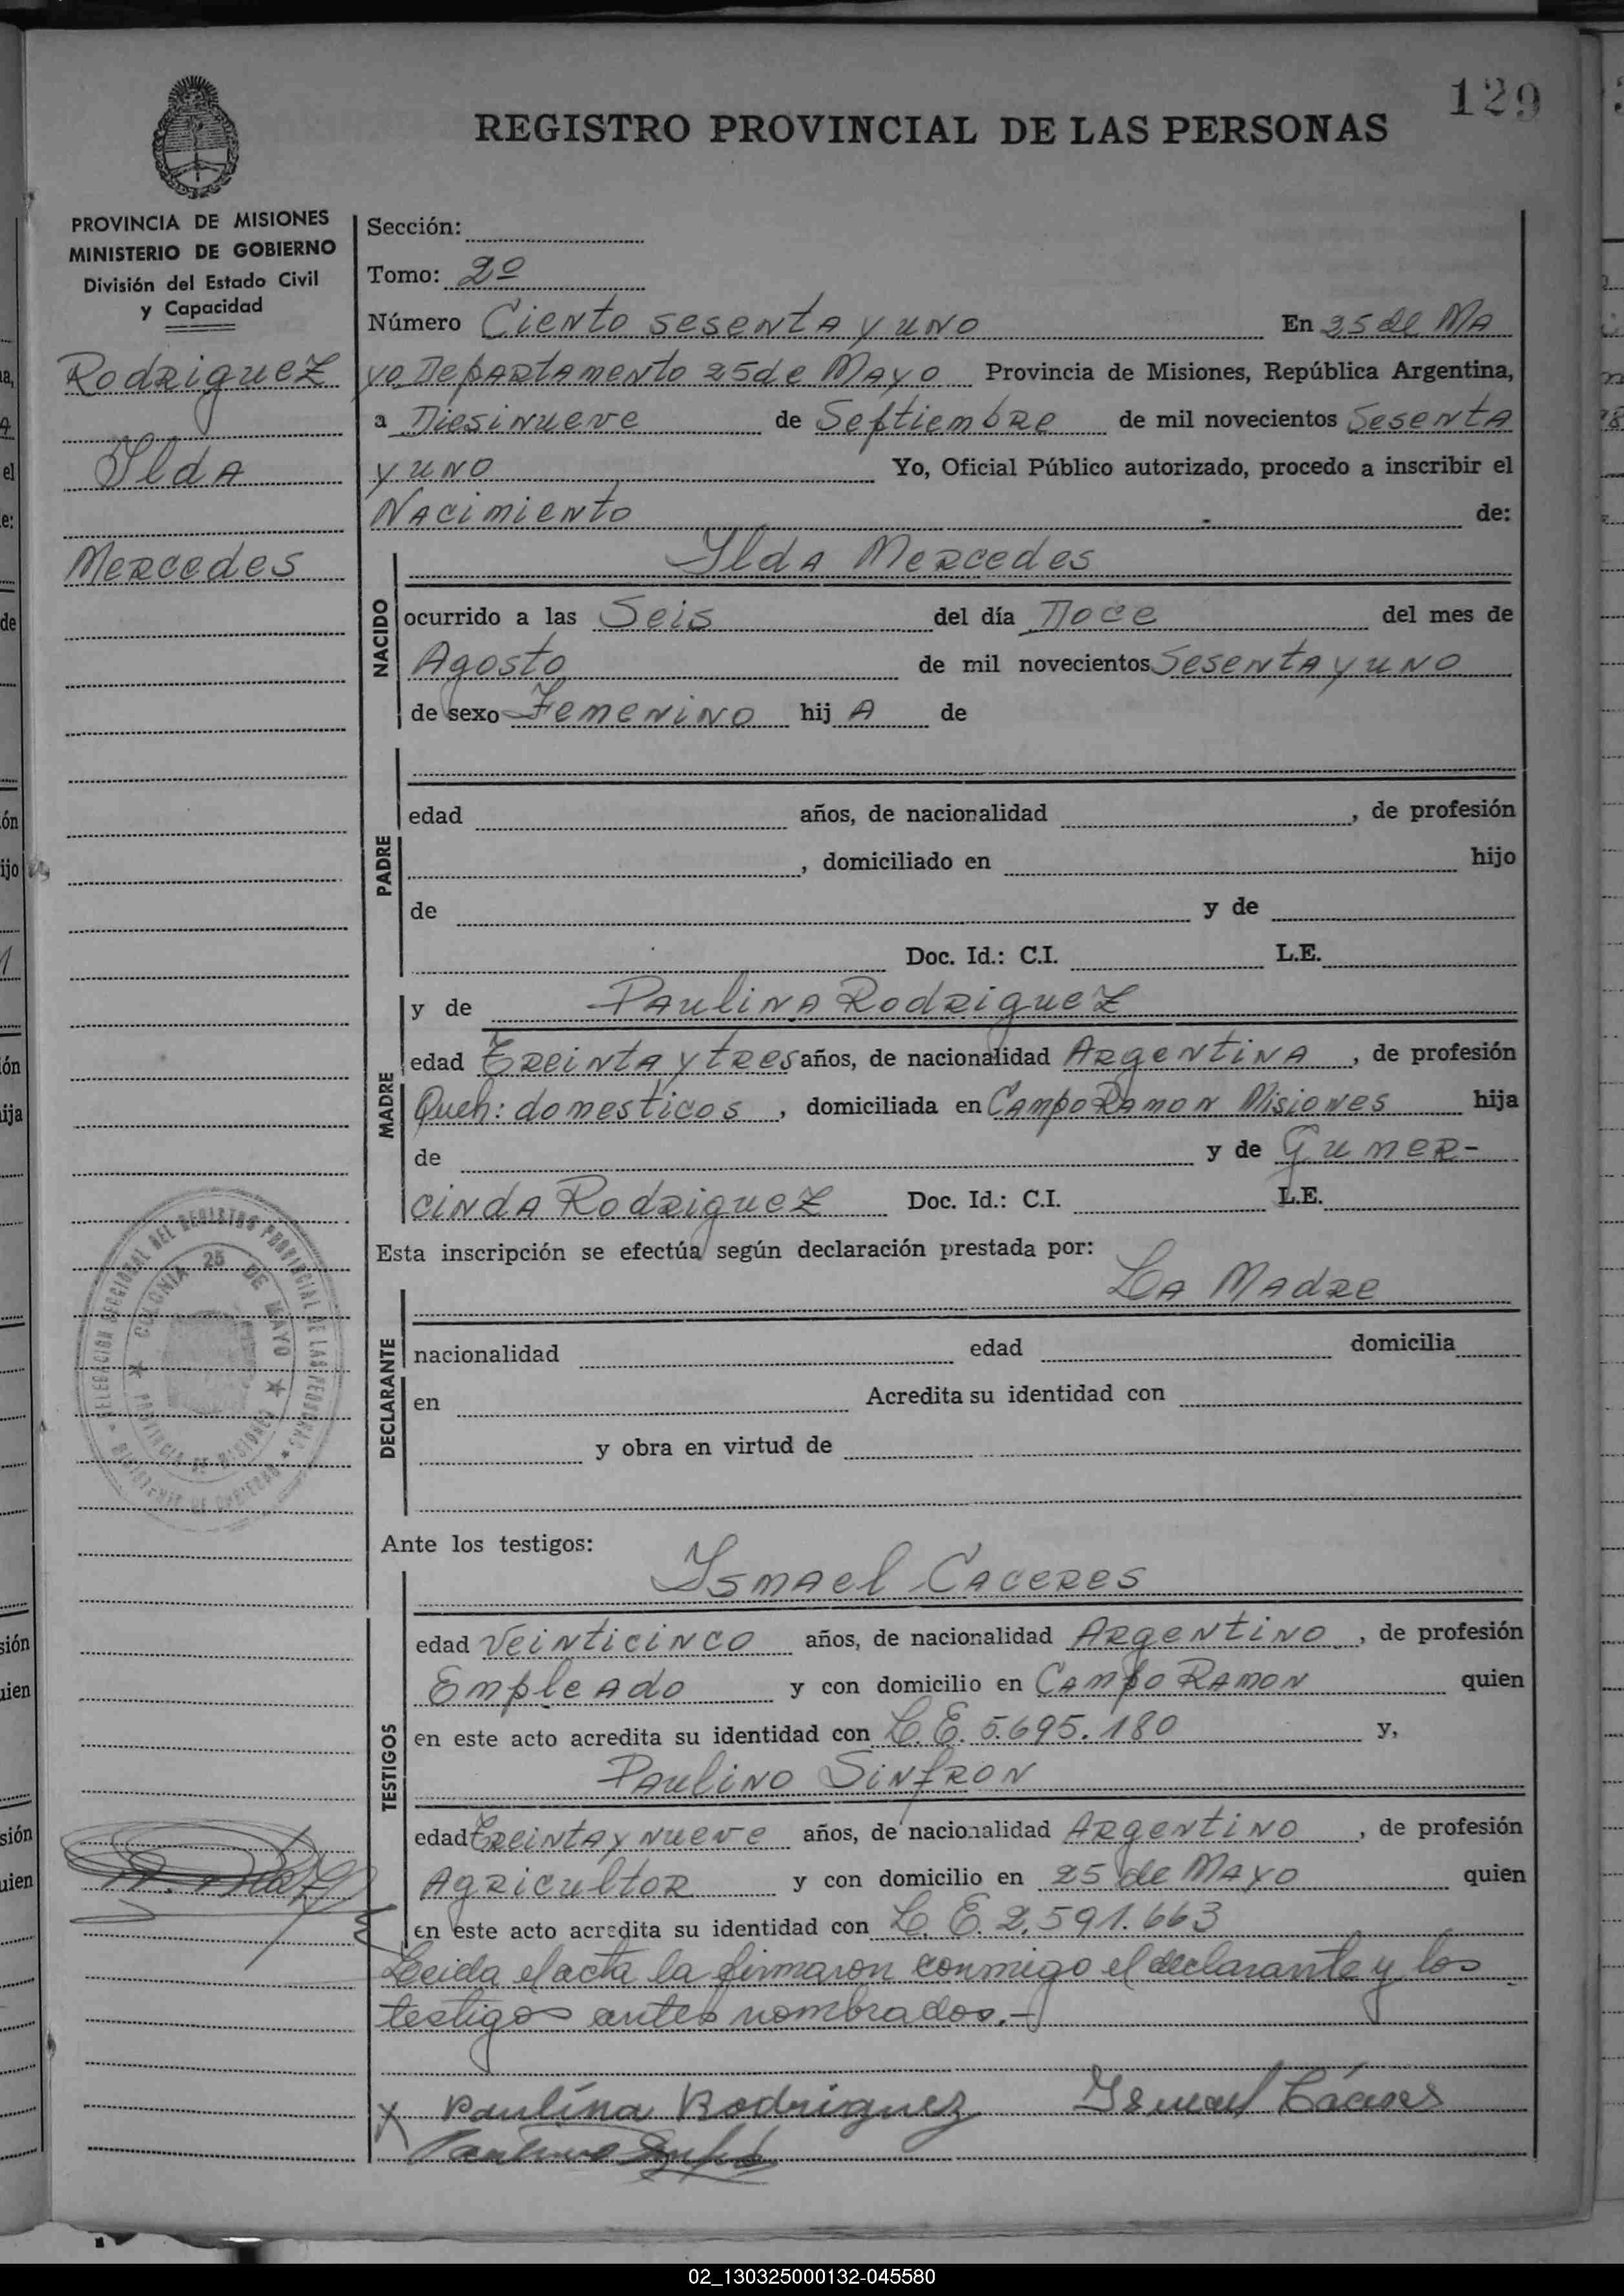 129
REGISTRO PROVINCIAL DE LAS PERSONAS
PROVINCIA DE MISIONES
MINISTERIO DE GOBIERNO
División del Estado Civil
y Capacidad
Rodriguez
Ilda
Mercedes
Sección:
Tomo: 2º
Número Ciento sesenta y uno En 25 de Ma
yo Departamento 25 de Mayo Provincia de Misiones, República Argentina,
a Diesinueve de Septiembre de mil novecientos Sesenta
y uno Yo, Oficial Público autorizado, procedo a inscribir el
Nacimiento de:
Ilda Mercedes
NACIDO
ocurrido a las Seis del día Doce del mes de
Agosto de mil novecientos Sesenta y uno
de sexo Femenino hij A de
PADRE
edad años, de nacionalidad , de profesión
, domiciliado en hijo
de y de
Doc. Id.: C.I. L.E.
MADRE
y de Paulina Rodriguez
edad Treinta y tres años, de nacionalidad Argentina , de profesión
Queh: domesticos , domiciliada en Campo Ramon Misiones hija
de y de Gumer-
cinda Rodriguez Doc. Id.: C.I. L.E.
Esta inscripción se efectúa según declaración prestada por:
La Madre
DECLARANTE
nacionalidad edad domicilia
en Acredita su identidad con
y obra en virtud de
DELEGACION SECCIONAL DEL REGISTRO PROVINCIAL DE LAS PERSONAS
COLONIA 25 DE MAYO
PROVINCIA DE MISIONES
MINISTERIO DE GOBIERNO
Ante los testigos:
TESTIGOS
Ismael Caceres
edad Veinticinco años, de nacionalidad Argentino , de profesión
Empleado y con domicilio en Campo Ramon quien
en este acto acredita su identidad con L.E. 5.695.180 y,
Paulino Sinfron
edad Treinta y nueve años, de nacionalidad Argentino , de profesión
Agricultor y con domicilio en 25 de Mayo quien
en este acto acredita su identidad con L.E. 2.591.663
Leida el acta la firmaron conmigo el declarante y los
testigos antes nombrados.-
X Paulína Rodriguez Ismael Cáceres
Paulino
02_130325000132-045580